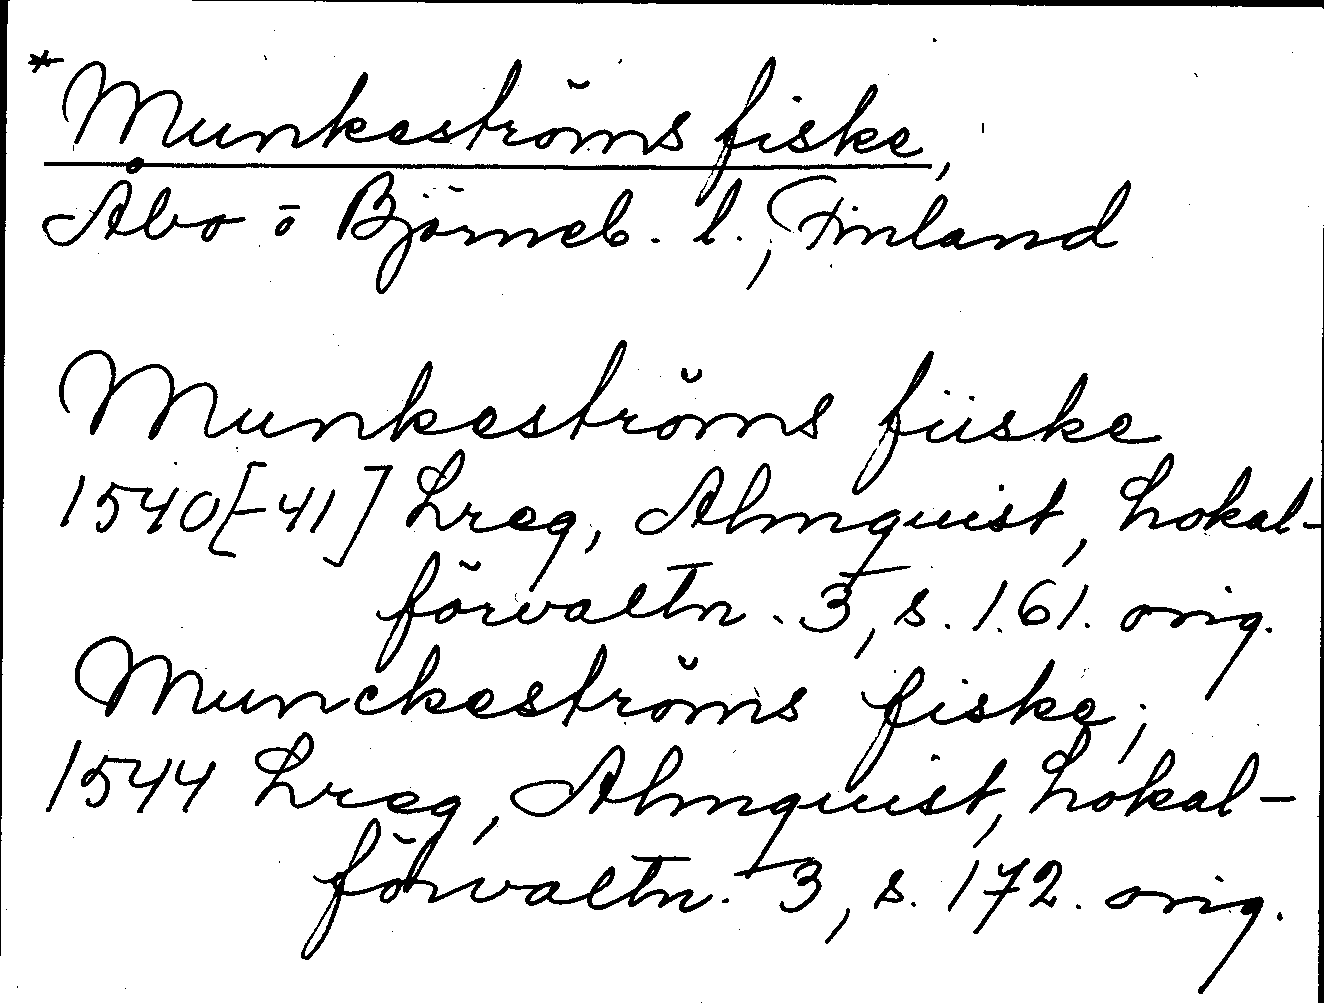 *Munkeströms fiske,
Åbo o Björneb. l., Finland
Munkeströms fiiske
1540[-41] Lreg, Almquist, Lokal-
förvaltn. 3, s. 161. orig.
Munckeströms fiske,
1544 Lreg, Almquist, Lokal-
förvaltn. 3, s. 172. orig.